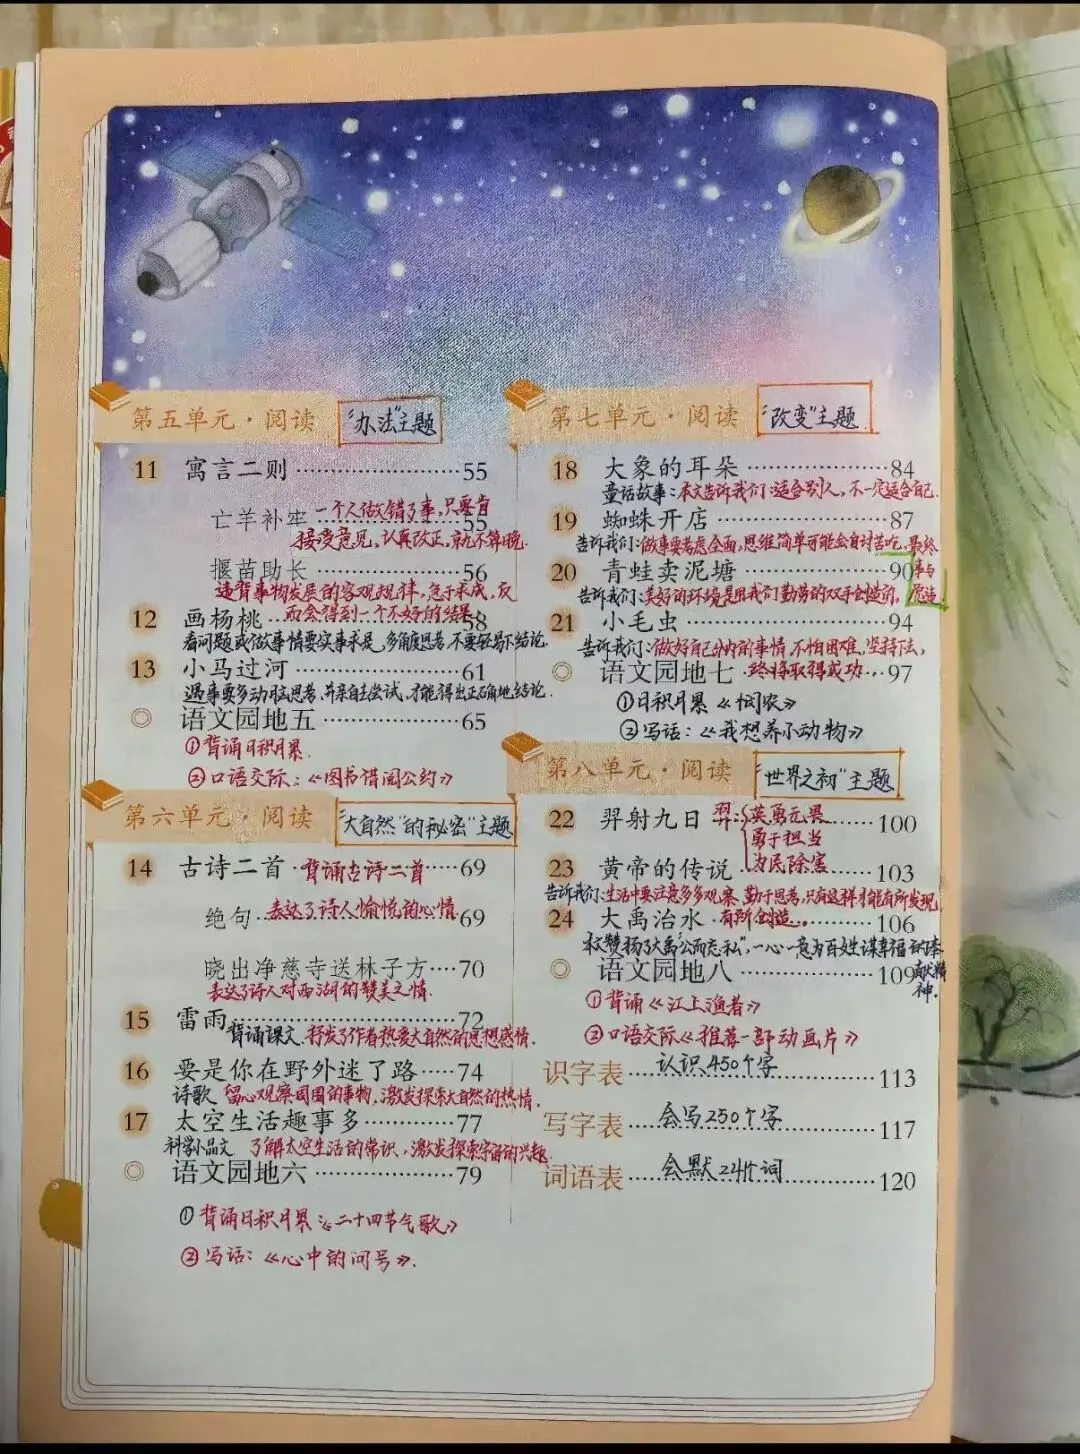 第五单元·阅读 "办法"主题
11 寓言二则 55
亡羊补牢 一个人做错了事,只要肯 55
接受意见,认真改正,就不算晚.
揠苗助长 56
违背事物发展的客观规律,急于求成,反
而会得到一个不好的结果.
12 画杨桃 58
看问题或做事情要实事求是,多角度思考,不要轻易下结论.
13 小马过河 61
遇事要多动脑思考,并亲自去尝试,才能得出正确地结论.
◎ 语文园地五 65
①背诵日积月累.
②口语交际:《图书借阅公约》
第六单元·阅读 "大自然"的秘密"主题
14 古诗二首 背诵古诗二首 69
绝句 表达了诗人愉悦的心情 69
晓出净慈寺送林子方 70
表达了诗人对西湖的赞美之情.
15 雷雨 72
背诵课文.抒发了作者热爱大自然的思想感情.
16 要是你在野外迷了路 74
诗歌 留心观察周围的事物,激发探索大自然的热情.
17 太空生活趣事多 77
科学小品文 了解太空生活的常识,激发探索宇宙的兴趣.
◎ 语文园地六 79
①背诵日积月累:《二十四节气歌》
②写话:《心中的问号》.
第七单元·阅读 "改变"主题
18 大象的耳朵 84
童话故事:本文告诉我们:适合别人,不一定适合自己.
19 蜘蛛开店 87
告诉我们:做事要考虑全面,思维简单可能会自讨苦吃,最终
事与
愿违
20 青蛙卖泥塘 90
告诉我们:美好的环境是用我们勤劳的双手创造的.
21 小毛虫 94
告诉我们:做好自己分内的事情,不怕困难,坚持下去,
◎ 语文园地七 终将取得成功 97
①日积月累《悯农》
②写话:《我想养小动物》
第八单元·阅读 "世界之初"主题
22 羿射九日 羿: 英勇无畏 100
勇于担当
23 黄帝的传说 为民除害 103
告诉我们:生活中要注意多多观察,勤于思考,只有这样才能有所发现,
24 大禹治水 有所创造. 106
本文赞扬了大禹"公而忘私",一心一意为百姓谋幸福的奉
献精
神.
◎ 语文园地八 109
①背诵《江上渔者》
②口语交际《推荐一部动画片》
识字表 认识450个字 113
写字表 会写250个字 117
词语表 会默 120